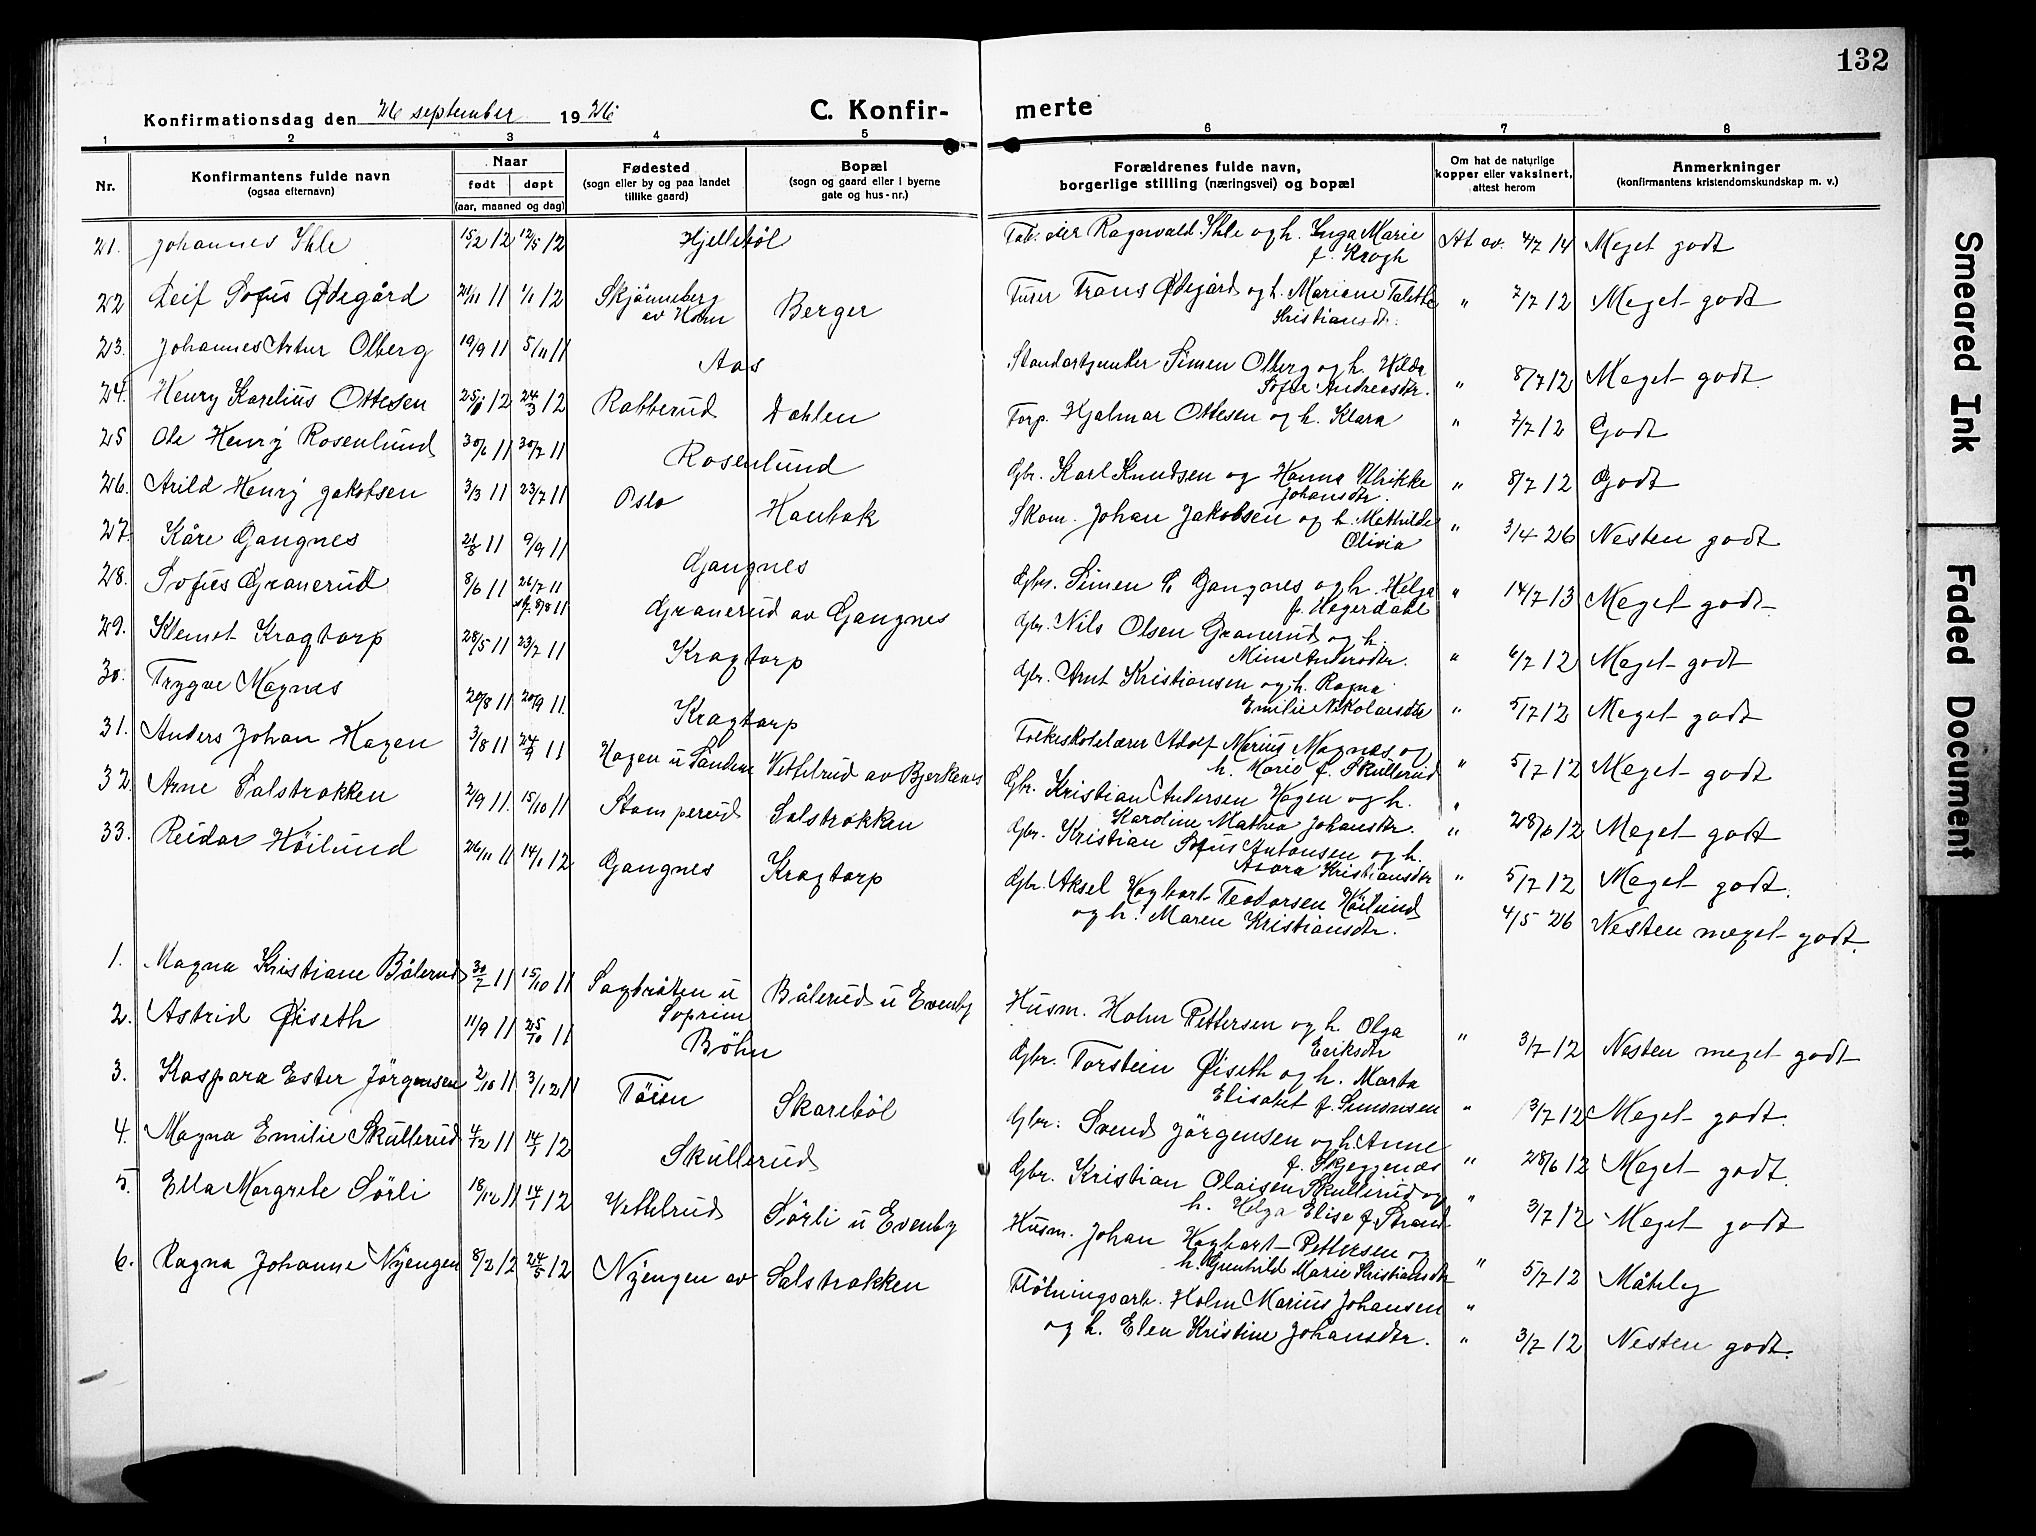 132
Konfirmationsdag den 26 september 1926
C. Konfir- merte
1 2 3 4 5 6 7 8
Nr.
Konfirmantens fulde navn
(ogsaa efternavn)
Naar
født døpt
(aar, maaned og dag)
Fødested
(sogn eller by og paa landet
tillike gaard)
Bopæl
(sogn og gaard eller i byerne
gate og hus-nr.)
Forældrenes fulde navn,
borgerlige stilling (næringsvei) og bopæl
Om hat de naturlige
kopper eller vaksinert,
attest herom
Anmerkninger
(konfirmantens kristendomskundskap m. v.)
21. Johannes Ihle 15/2 12 12/5 12 Hjellebøl Fab. eier Ragnvald Ihle og h. Inga Marie At av. 4/7 14 Meget godt
f. Krogh
22 Leif Sofus Ødegård 21/11 11 1/1 12 Skjønneberg Berger Furer Frans Ødegård og h. Mariene Talette " 7/7 12 Meget godt
av Horn
Kristiansdtr.
23. Johannes Artur Olberg 19/9 11 5/11 11 Aas Standartjunker Simen Olberg og h. Hilda " 8/7 12 Meget godt.
Sofie Andreasdtr.
24. Henry Karelius Ottesen 12 24/3 12 Rabberud Dahlen Forp. Hjalmar Ottesen og h. Klara " 7/7 12 Godt
25 Ole Henry Rosenlund 30/6 11 30/7 11 Rosenlund Gbr. Karl Knudsen og Hanna Ulrikke " 8/7 12 Godt
Johansdtr.
26. Arild Henry Jakobsen 3/3 11 23/7 11 Oslo Kom. Johan Jakobsen og h. Mathilde " 3/4 26 Nesten godt
Olivia
27. Kåre Gangnes 11 9/9 11 Gangnes Gbr. Simen Gangnes og h. Helga " 14/7 13 Meget godt
f. Hegerdahl
28. Sofus Granerud 8/6 11 26/7 11 Granerud av Gangnes Gbr. Nils Olsen Granerud og h. " 6/7 12 Meget godt
Mina Andersdtr.
29. Klemet Kragtorp 28/5 11 23/7 11 Kragtorp Gbr. Arnt Kristiansen og h. Ragna " 5/7 12 Meget godt
Emilie Nikolaisdtr
30. Trygve Magnes 20/8 11 20/9 11. Kragtorp Folkeskolelærer Adolf Marius Magnes og " 5/7 12 Meget godt
h. Marie f. Skullerud
31. Anders Johan Hagen 3/8 11 24/9 11 Hagen u Sandem Vettelrud av Bjerkenes Gbr. Kristian Andersen Hagen og h. " 28/6 12 Meget godt
Karoline Mathea Johansdtr.
32. Arne Salstrokken 2/9 11. 15/10 11 Stomperud Salstrokken Gbr. Kristian Sofus Antonsen og h. " 5/7 12 Meget godt.
Kristiansdtr
33. Reidar Høilund 26/11 11 14/1 12 Gangnes Kragtorp Gbr. Aksel Hagbart Teodorsen Høilund 4/5 26 Nesten meget godt.
og h. Maren Kristiansdtr.
1. Magna Kristiane Bålerud 30/7 11 15/10 11 Sagbråten u Bålerud u Evenby Husm. Holm Pettersen og h. Olga " 3/7 12 Nesten meget godt
Eriksdtr
2. Astrid Øiseth 11/9 11 25/10 11 Böhn Gbr. Torstein Øiseth og h. Marta " 3/7 12 Meget godt.
Elisabet f. Simonsen
3. Kaspara Ester Jörgensen 2/10 11 3/12 11 Tøien Skarebøl Gbr. Svend Jörgensen og h. Anne " 28/6 12 Meget godt.
f. Skjeggenæs
4. Magna Emilie Skullerud 4/12 11 14/1 12 Skullerud Gbr. Kristian Olaisen Skullerud og " 3/7 12 Meget godt
h. Helga Elise f Strand
5. Ella Margrete Sørli 18/12 11 14/1 12 Vettelrud Sørli u Evenby Husm. Johan Hagbart Pettersen og " 5/7 12 Måtelig
h. Gunhild Marie Kristiansdtr
6. Ragna Johanne Nyengen 8/2 12 24/5 12 Nyengen av Salstrokken Fløtningsarb. Holm Marius Johansen "
og h. Elen Kristine Johansdtr. " 3/7 12 Nesten godt.
Smeared Ink
Faded Document